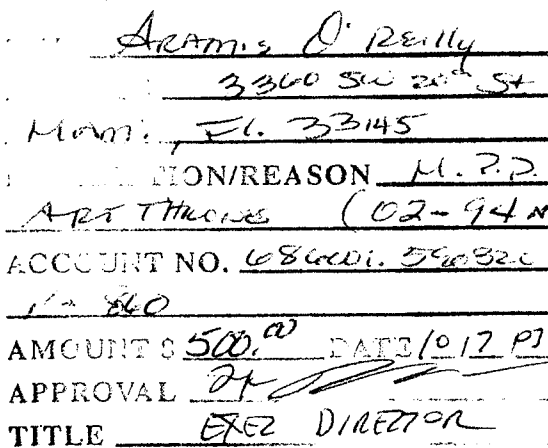 Aramis O'Reilly
3360 SW 20th St
Miami, Fl. 33145
TION/REASON M.P.D.
ART THRONES (02-94
ACCCOUNT NO. 686001.
860
AMOUNT $ 500.00 DATE 10 17 
APPROVAL
TITLE EXEZ DIRECTOR